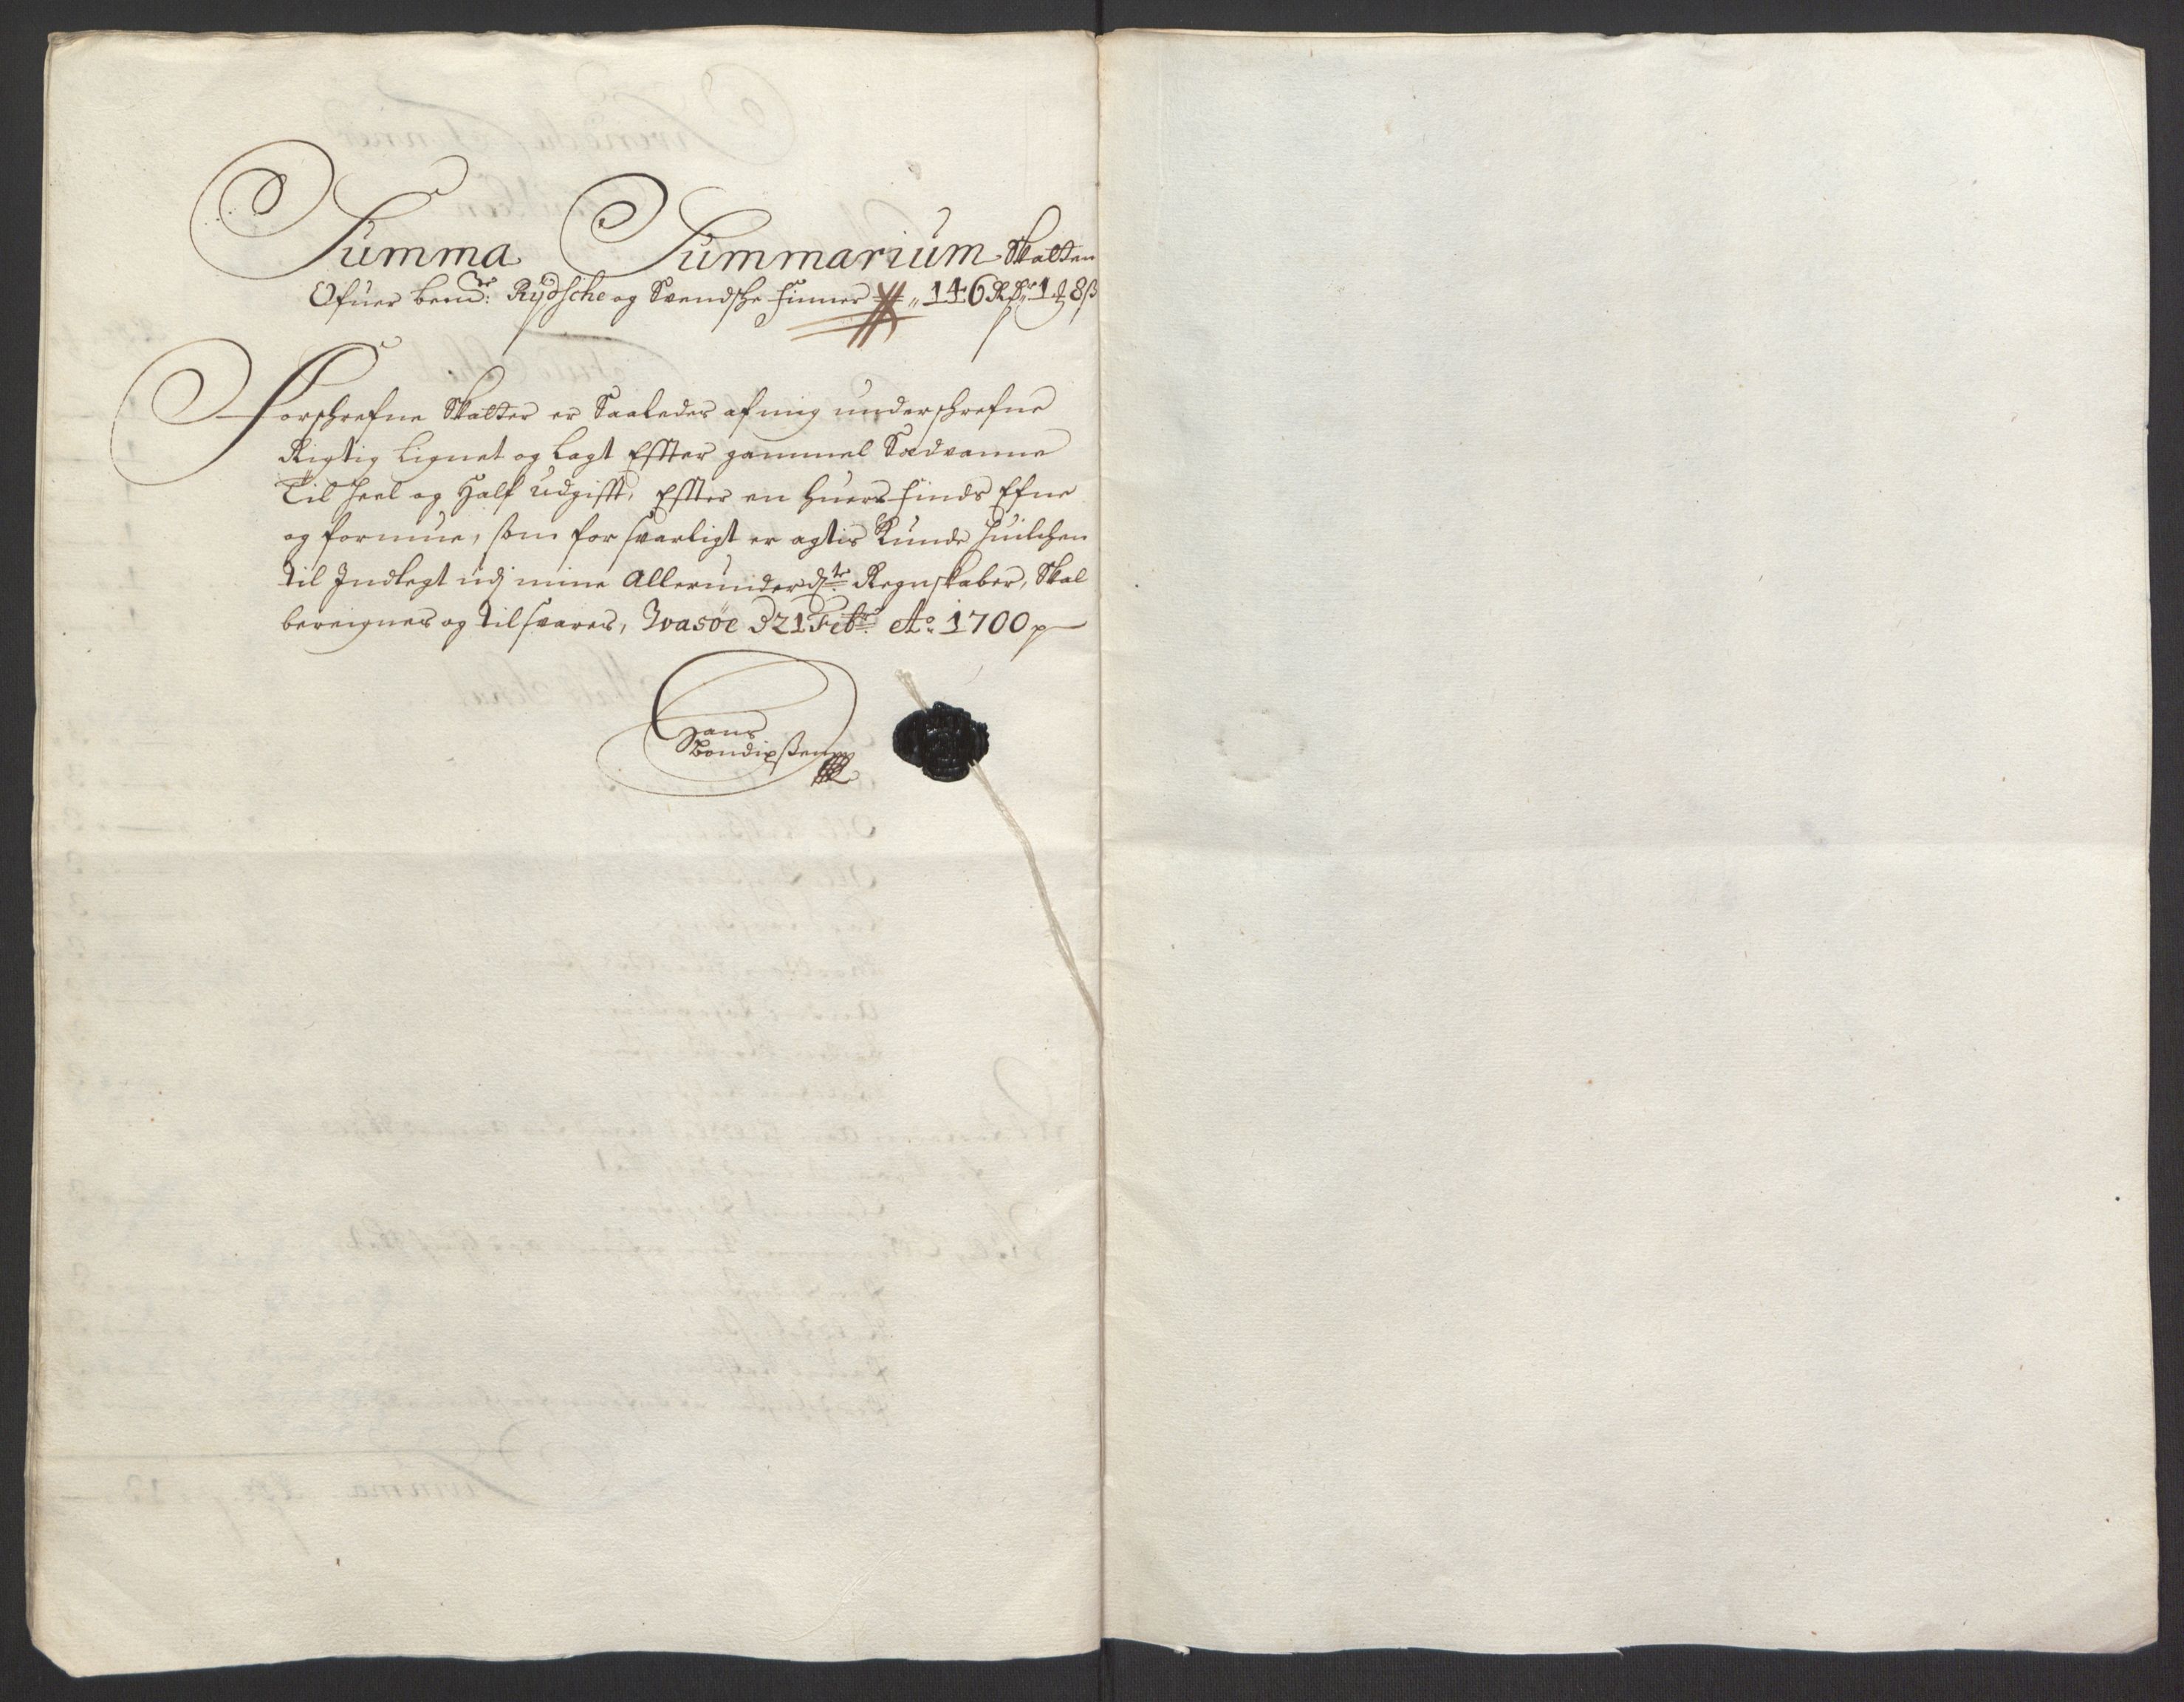 Summa Summarium Skatten
Ofuer bem:te Rydsche og Svendsche finner 146 Rdr 1 ort 8 ß
Forschrefne Skatter er Saaledes af mig underschrefne
Rigtig Lignet og Lagt Effter gammel Sædvanne
Til heel og Half udgifft, Effter en huers finds Efne
og formue, som forsvarligt er agtis Kunde huilchen
til Indtegt udj mine Allerunderd:te Regnskaber, Skal
bereignes og tilsvares, Ivasöe d 21 Feb: Ao 1700
Hans